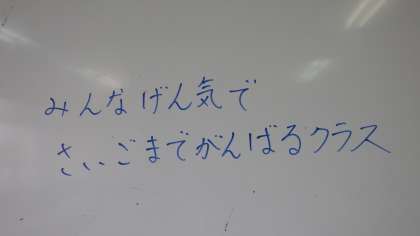 みんなげん気で
さいごまでがんばるクラス